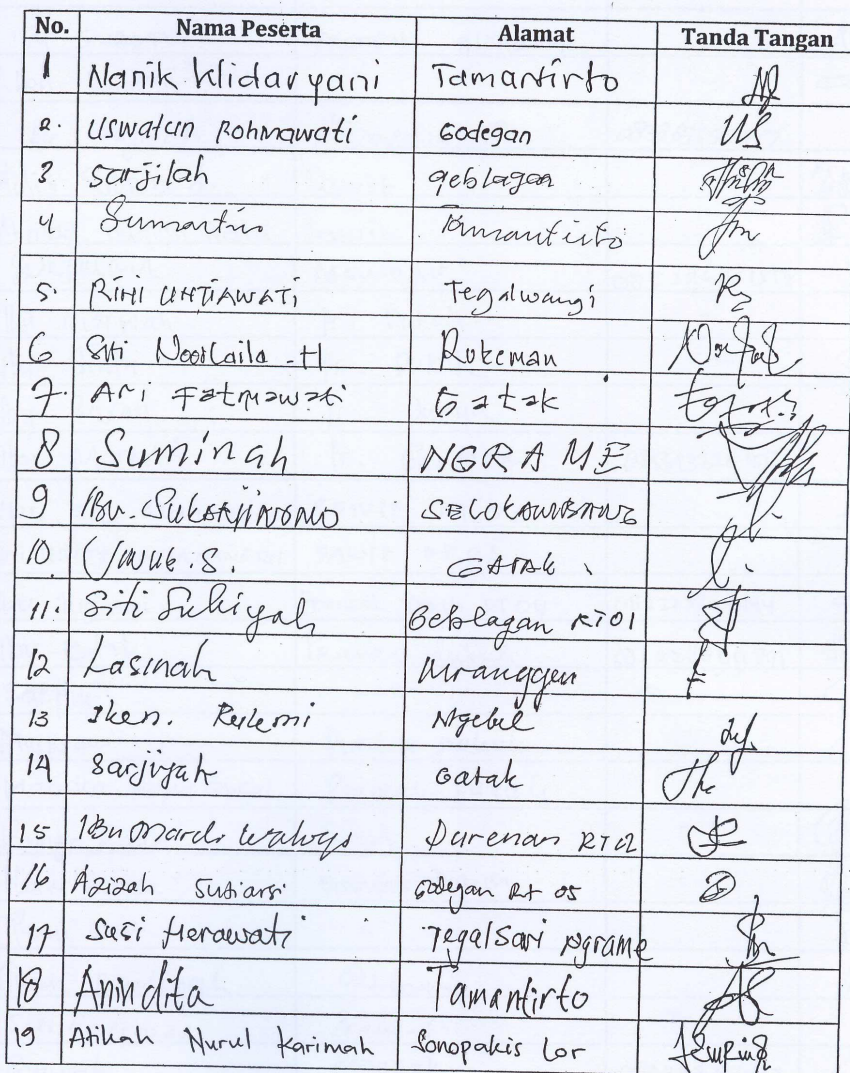 No. Nama Peserta Alamat Tanda Tangan
1 Nanik Klidaryani Tamantirto
2. Uswatun Rohmawati Godegan US
3 Sarjilah Geblagan
4 Sumartini Tamantirto
5. RINI UNTIAWATI Tegalwangi
6 Siti Noorlaila -H Rukeman
7. Ari Fatmawati Gatak
8 Suminah NGRAME
9 IBu. SELOKAMBANG
10. S. GATAK
11. Siti Sukiyah Geblagan RT01
12 Lasinah Wranggen
13 Iken. Ngebel
14 Sarjiyah Gatak
15 IBu Mardi Durenan RT02
16 Azizah Sutiarsi Godegan Rt 05
17 Susi Herawati TegalSari Ngrame
18 Anindita Tamantirto
19 Atikah Nurul Karimah Sonopakis Lor